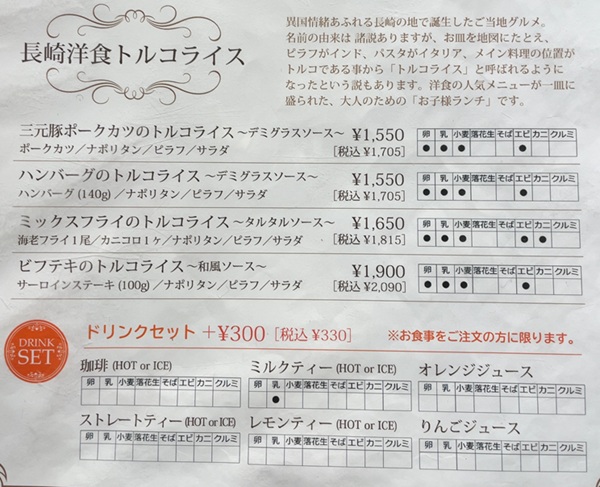 長崎洋食トルコライス
異国情緒あふれる長崎の地で誕生したご当地グルメ。
名前の由来は 諸説ありますが、お皿を地図にたとえ、
ピラフがインド、パスタがイタリア、メイン料理の位置が
トルコである事から「トルコライス」と呼ばれるように
なったという説もあります。洋食の人気メニューが一皿に
盛られた、大人のための「お子様ランチ」です。
三元豚ポークカツのトルコライス～デミグラスソース～ ¥1,550
ポークカツ／ナポリタン／ピラフ／サラダ [税込 ¥1,705]
卵 乳 小麦 落花生 そば エビ カニ クルミ
● ● ● ●
ハンバーグのトルコライス～デミグラスソース～ ¥1,550
ハンバーグ (140g) ／ナポリタン／ピラフ／サラダ [税込 ¥1,705]
卵 乳 小麦 落花生 そば エビ カニ クルミ
● ● ● ●
ミックスフライのトルコライス～タルタルソース～ ¥1,650
海老フライ1尾／カニコロ1ヶ／ナポリタン／ピラフ／サラダ [税込 ¥1,815]
卵 乳 小麦 落花生 そば エビ カニ クルミ
● ● ● ● ●
ビフテキのトルコライス～和風ソース～ ¥1,900
サーロインステーキ (100g) ／ナポリタン／ピラフ／サラダ [税込 ¥2,090]
卵 乳 小麦 落花生 そば エビ カニ クルミ
● ● ● ●
DRINK
SET
ドリンクセット +¥300 [税込 ¥330] ※お食事をご注文の方に限ります。
珈琲 (HOT or ICE)
卵 乳 小麦 落花生 そば エビ カニ クルミ
ミルクティー (HOT or ICE)
卵 乳 小麦 落花生 そば エビ カニ クルミ
●
オレンジジュース
卵 乳 小麦 落花生 そば エビ カニ クルミ
ストレートティー (HOT or ICE)
卵 乳 小麦 落花生 そば エビ カニ クルミ
レモンティー (HOT or ICE)
卵 乳 小麦 落花生 そば エビ カニ クルミ
りんごジュース
卵 乳 小麦 落花生 そば エビ カニ クルミ